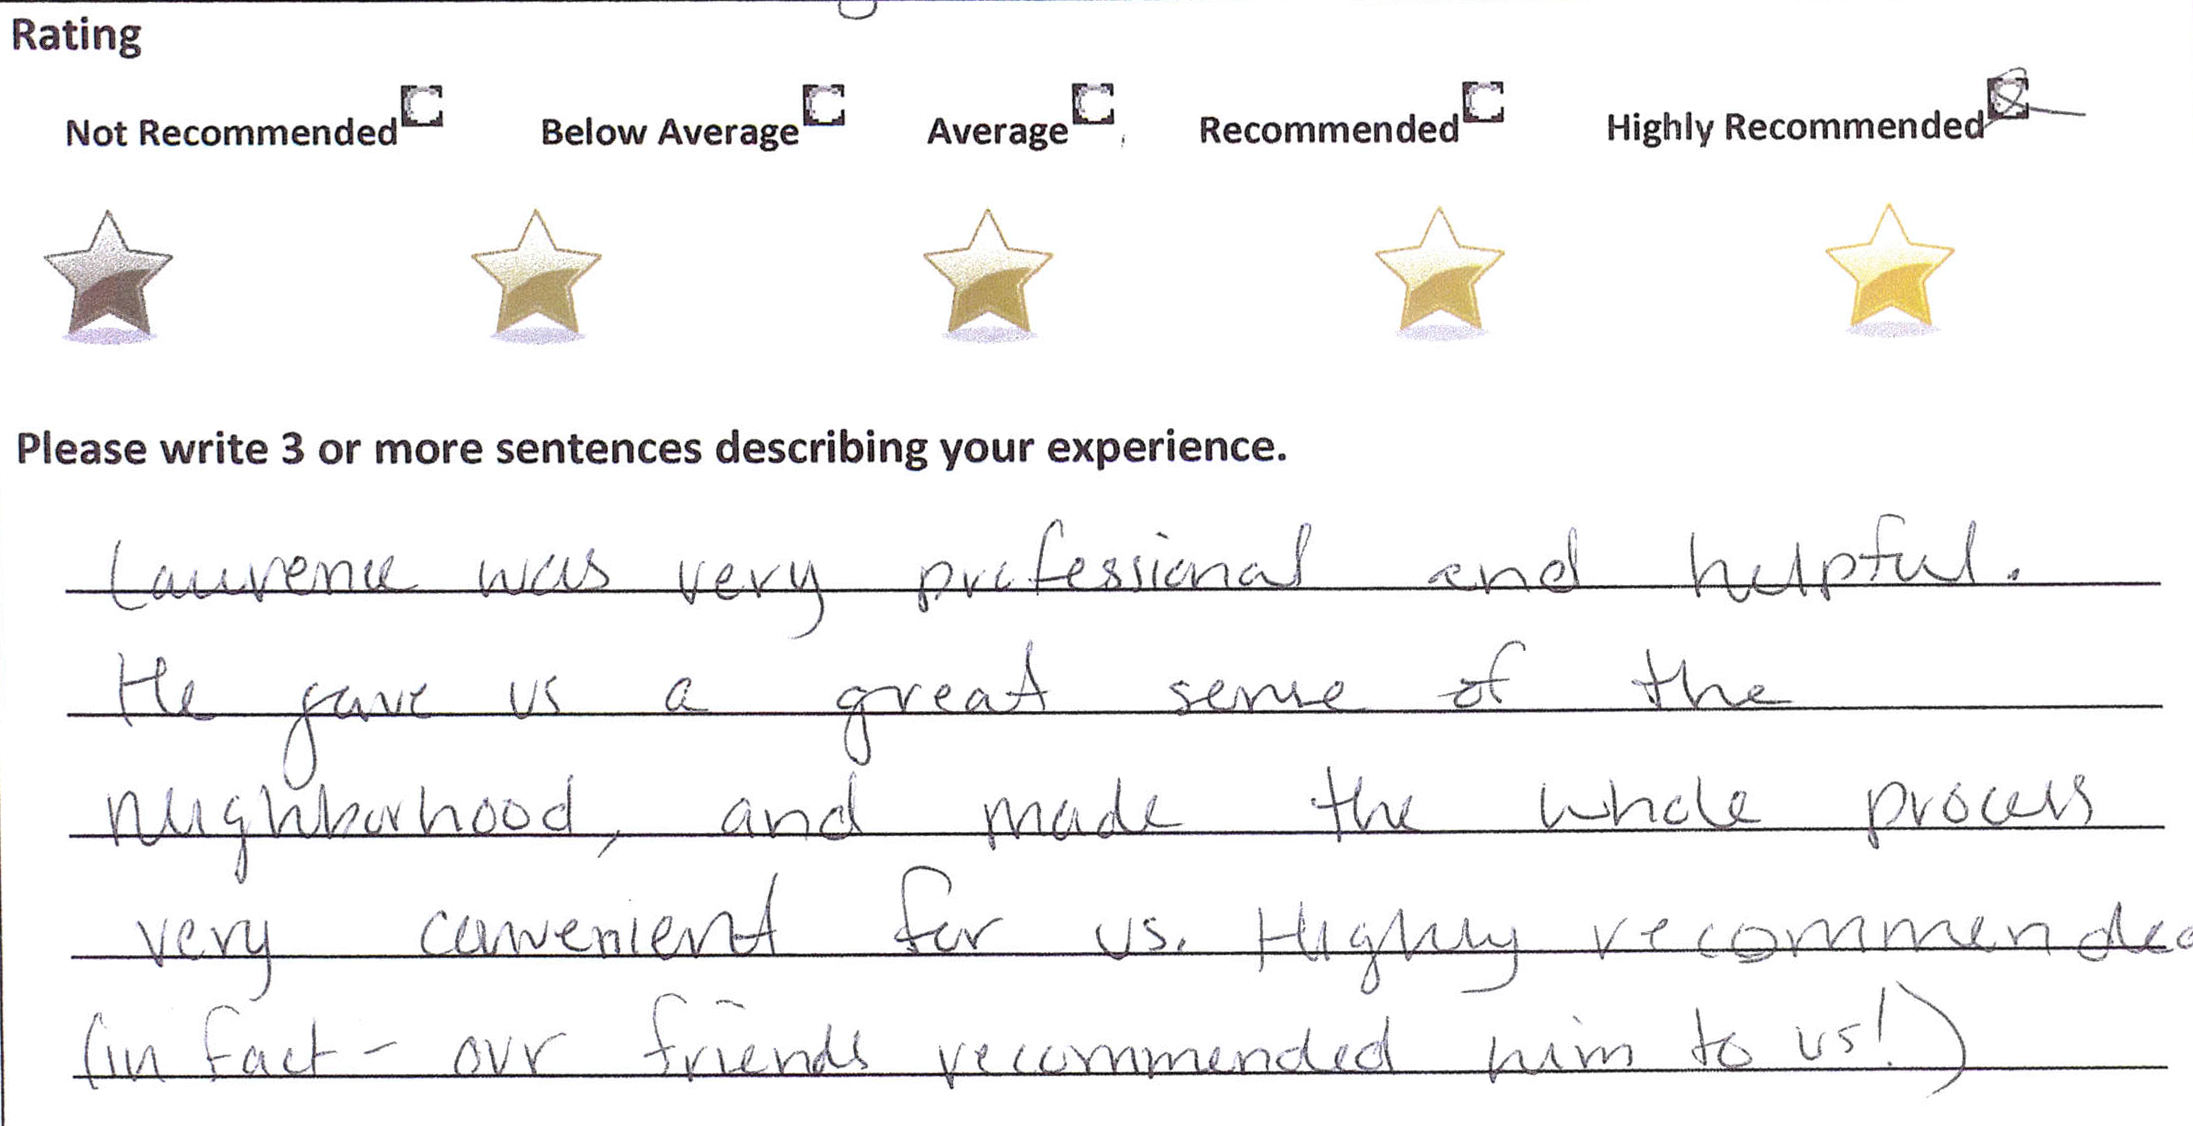 Rating
Not Recommended Below Average Average Recommended Highly Recommended
Please write 3 or more sentences describing your experience.
Laurence was very professional and helpful.
He gave us a great sense of the
neighborhood, and made the whole process
very convenient for us. Highly recommended
(in fact - our friends recommended him to us!)